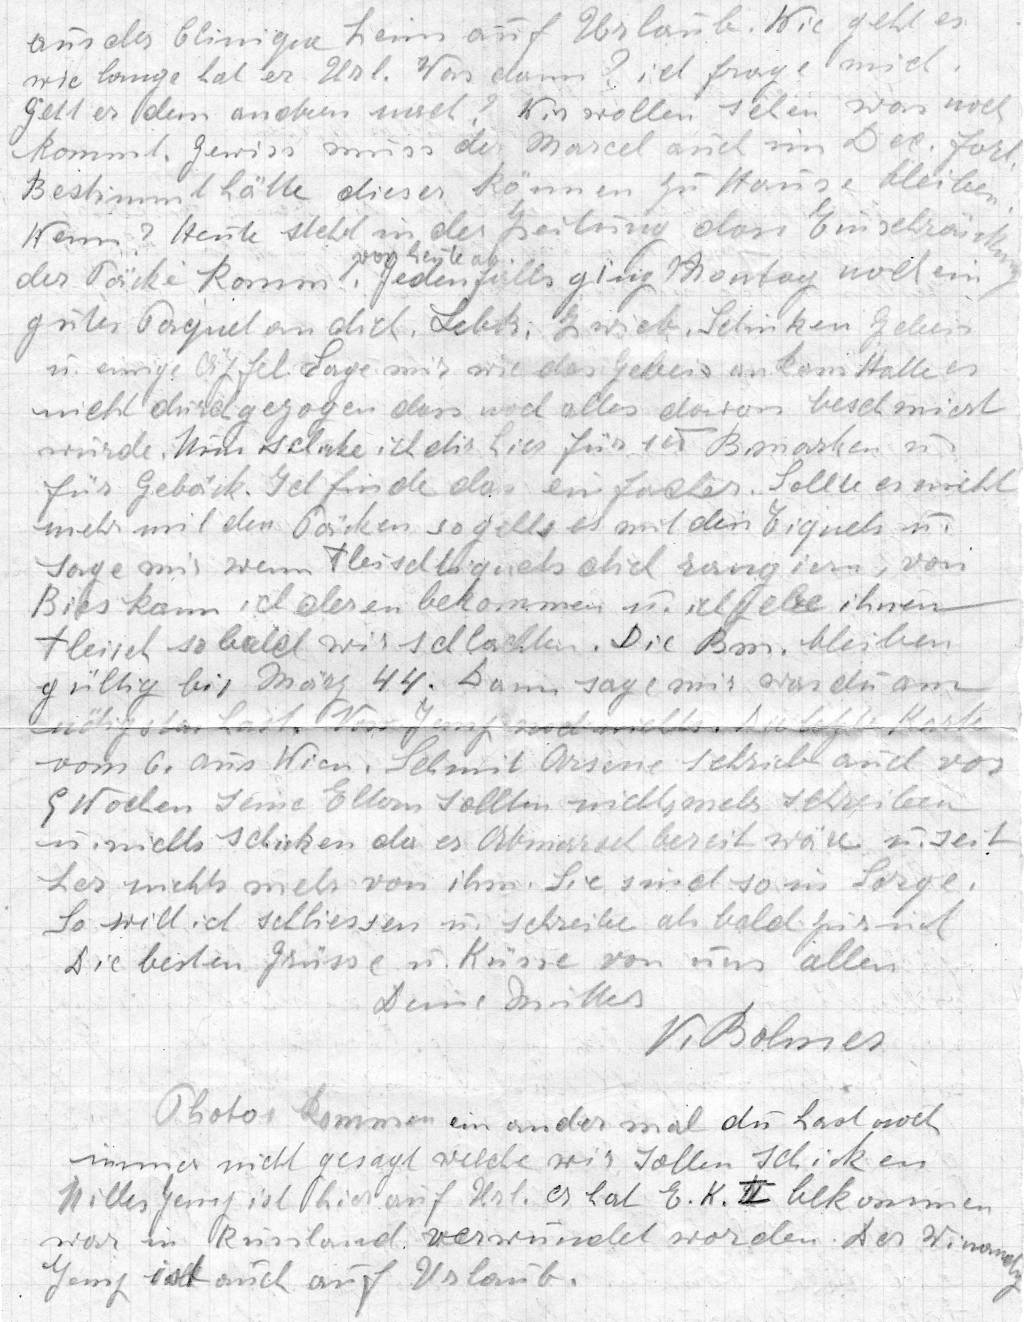 aus der Clinique heim auf Urlaub. Wie geht es
wie lange hat er Url. Was dann? ich frage mich.
Geht er dem andern nach? Wir wollen sehen was noch
kommt. Gewiss muss der Marcel auch im Dec. fort.
Bestimmt hätte dieser können zu Hause bleiben.
Wenn? Heute steht in der Zeitung dass Einschränkung
der Päcke kommt. von heute ab Jedenfalls ging Montag noch ein
gutes Paquet an dich. Lebk. Zwieb. Schinken Gebeis
u. einige Äpfel. Sage mir wie das Gebeis ankam Hatte es
nicht durchgezogen dass noch alles davon beschmiert
wurde. Nun schicke ich dir hier für B.marken u.
für Gebäck. Ich finde das einfacher. Sollte es nicht
mehr mit den Päcken so gehts es mit den Tiquets u.
sage mir wenn Fleischtiquets dich rangiern, von
Bies kann ich deren bekommen u. ich gebe ihnen
Fleisch sobald wir schlachten. Die Bm. bleiben
gültig bis März 44. Dann sage mir was du am
nötigsten hast. Von Jemp noch nichts. Die letzte Karte
vom 6. aus Wien. Schmit Arsene schrieb auch vor
5 Wochen seine Eltern sollten nichts mehr schreiben
u. nichts schicken da er Abmarsch bereit wäre u. seit
her nichts mehr von ihm. Sie sind so in Sorge.
So will ich schliessen u. schreibe als bald zurück
Die besten Grüsse u. Küsse von uns allen
Deine Mutter
V. Bolmer
Photos kommen ein ander mal du hast noch
immer nicht gesagt welche wir sollen schicken
Nilles Jemp ist hier auf Url. er hat E.K. II bekommen
war in Russland verwundet worden. Der Winandy
Jemp ist auch auf Urlaub.